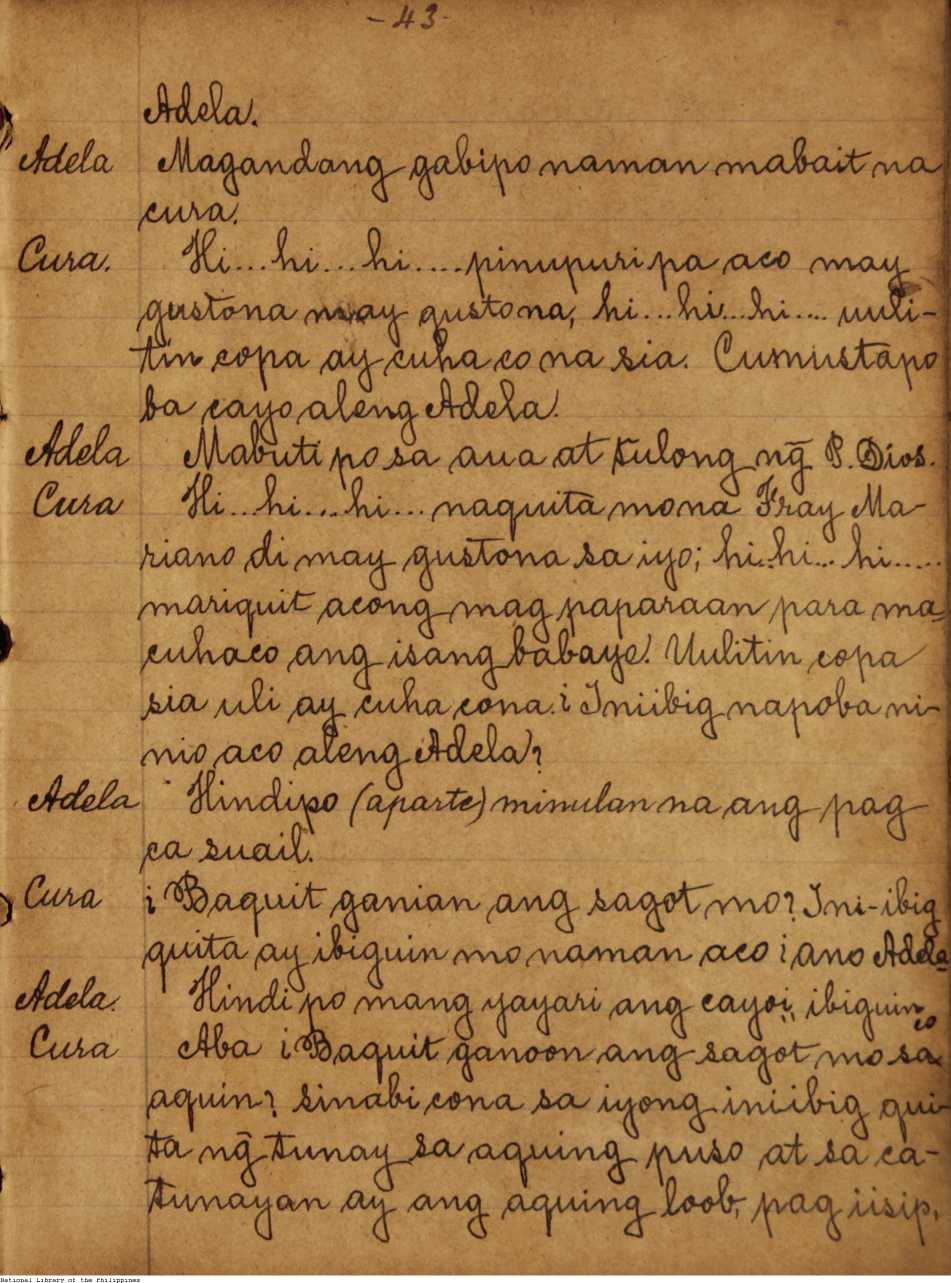 - 43 -
Adela.
Adela Magandang gabipo naman mabait na
cura.
Cura. Hi...hi...hi....pinupuri pa aco may
gustona may gustona, hi...hi...hi.... uuli-
tin copa ay cuha co na sia. Cumustapo
ba cayo aleng Adela.
Adela Mabuti po sa aua at tulong ng̃ P. Dios.
Cura Hi...hi...hi... naquita mona Fray Ma-
riano di may gustona sa iyo; hi..hi... hi.....
mariquit acong mag paparaan para ma-
cuhaco ang isang babaye. Uulitin copa
sia uli ay cuha cona. ¿Iniibig napoba ni-
nio aco aleng Adela?
Adela Hindipo (aparte) minulan na ang pag
ca suail.
Cura ¿Baquit ganian ang sagot mo? Ini-ibig
quita ay ibiguin mo naman aco ¿ano Adela
Adela. Hindi po mang yayari ang cayoi, ibiguin co
Cura Aba ¿Baquit ganoon ang sagot mo sa
aquin? sinabi cona sa iyong iniibig qui-
ta ng̃ tunay sa aquing puso at sa ca-
tunayan ay ang aquing loob, pag iisip,
National Library of the Philippines